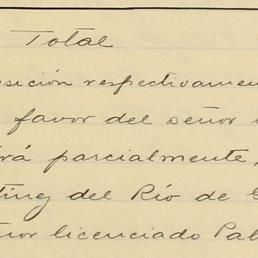 Total
sición respectivamen
favor del señor
rá parcialmente,
ting del Río de G
ñor licenciado Pal